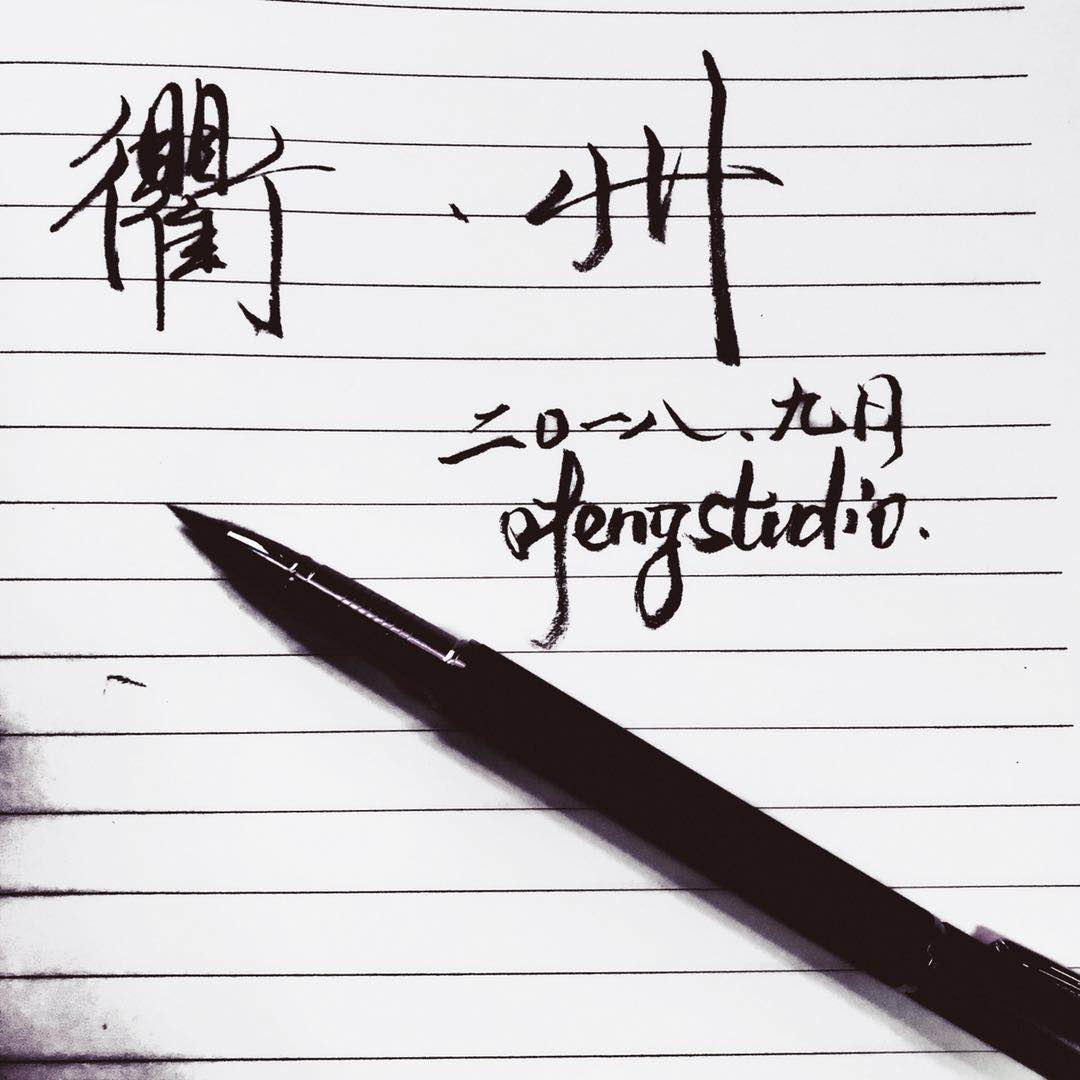 衢、州
二〇一八、九月
afengstudio.